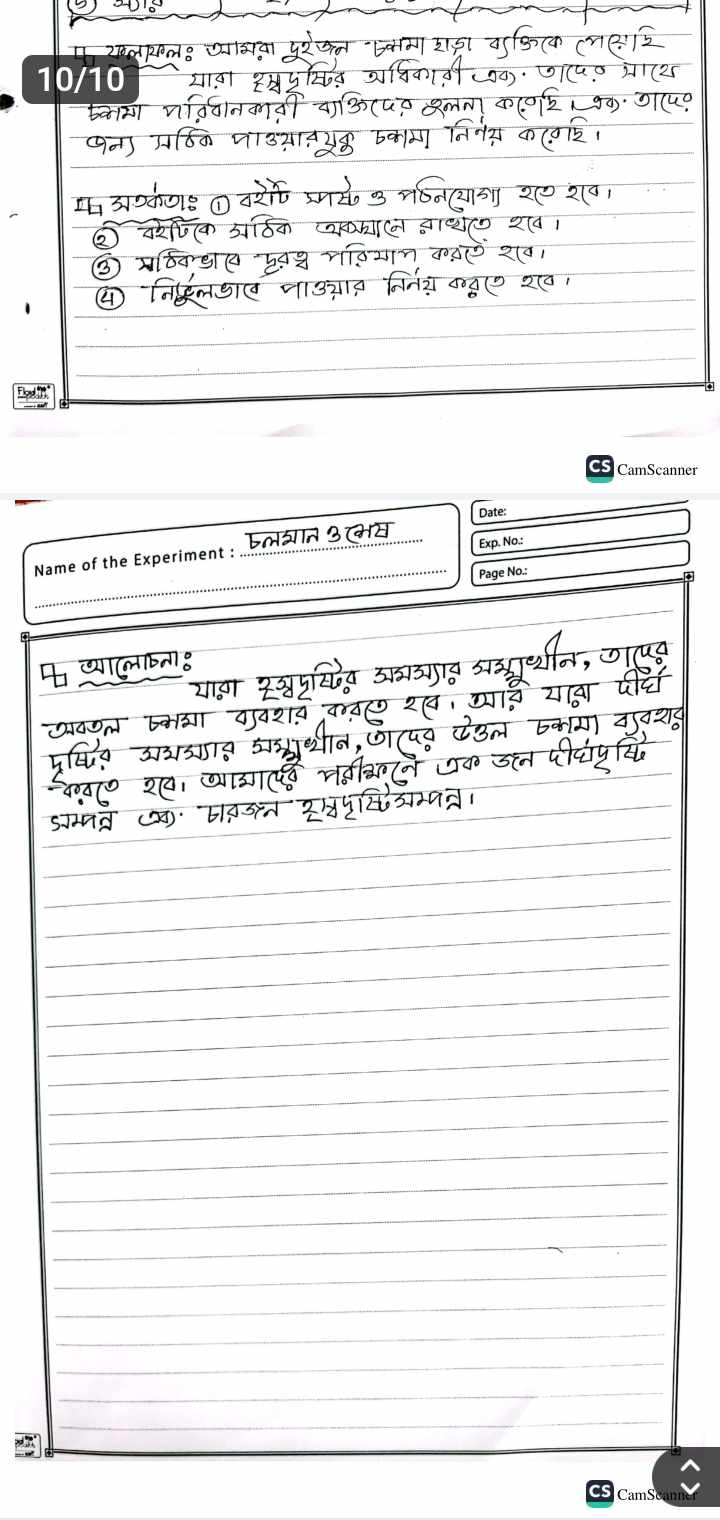 10/10
ফলাফলঃ আমরা দুইজন চশমা ছাড়া ব্যক্তিকে পেয়েছি
যারা হ্রস্বদৃষ্টির অধিকারী এবং তাদের সাথে
চশমা পরিধানকারী ব্যক্তিদের তুলনা করেছি এবং তাদের
জন্য সঠিক পাওয়ারযুক্ত চশমা নির্ণয় করেছি।
সতর্কতাঃ ① বইটি স্পষ্ট ও পঠনযোগ্য হতে হবে।
② বইটিকে সঠিক অবস্থানে রাখতে হবে।
③ সঠিকভাবে দূরত্ব পরিমাপ করতে হবে।
④ নির্ভুলভাবে পাওয়ার নির্নয় করতে হবে।
CS CamScanner
Name of the Experiment : চলমান ও শেষ
Date:
Exp. No.:
Page No.:
আলোচনাঃ
যারা হ্রস্বদৃষ্টির সমস্যার সম্মুখীন, তাদের
অবতল চশমা ব্যবহার করতে হবে। আর যারা দীর্ঘ
দৃষ্টির সমস্যার সম্মুখীন, তাদের উত্তল চশমা ব্যবহার
করতে হবে। আমাদের পরীক্ষনে এক জন দীর্ঘদৃষ্টি
সম্পন্ন এবং চারজন হ্রস্বদৃষ্টিসম্পন্ন।
CS CamScanner